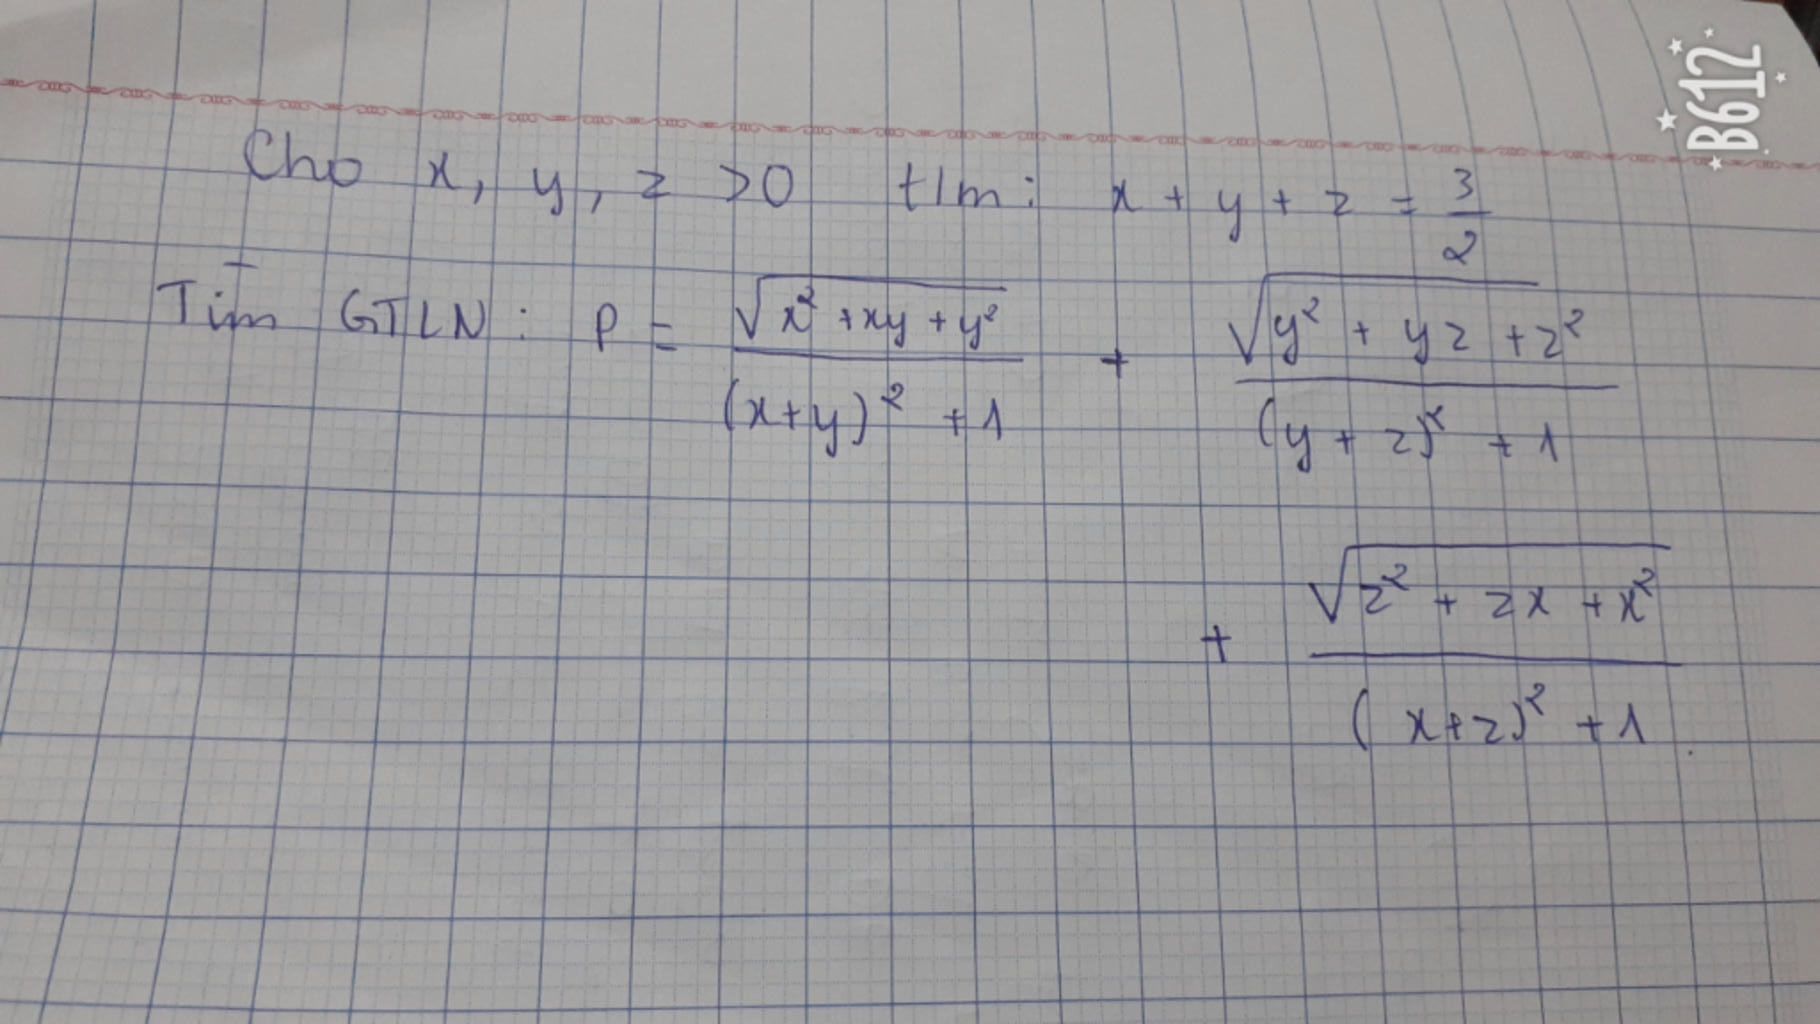 Cho x, y, z >0 t/m: x + y + z = 3/2
Tìm GTLN: P = √(x² + xy + y²) / ((x+y)² + 1) + √(y² + yz + z²) / ((y + z)² + 1)
+ √(z² + zx + x²) / ((x+z)² + 1).
B612